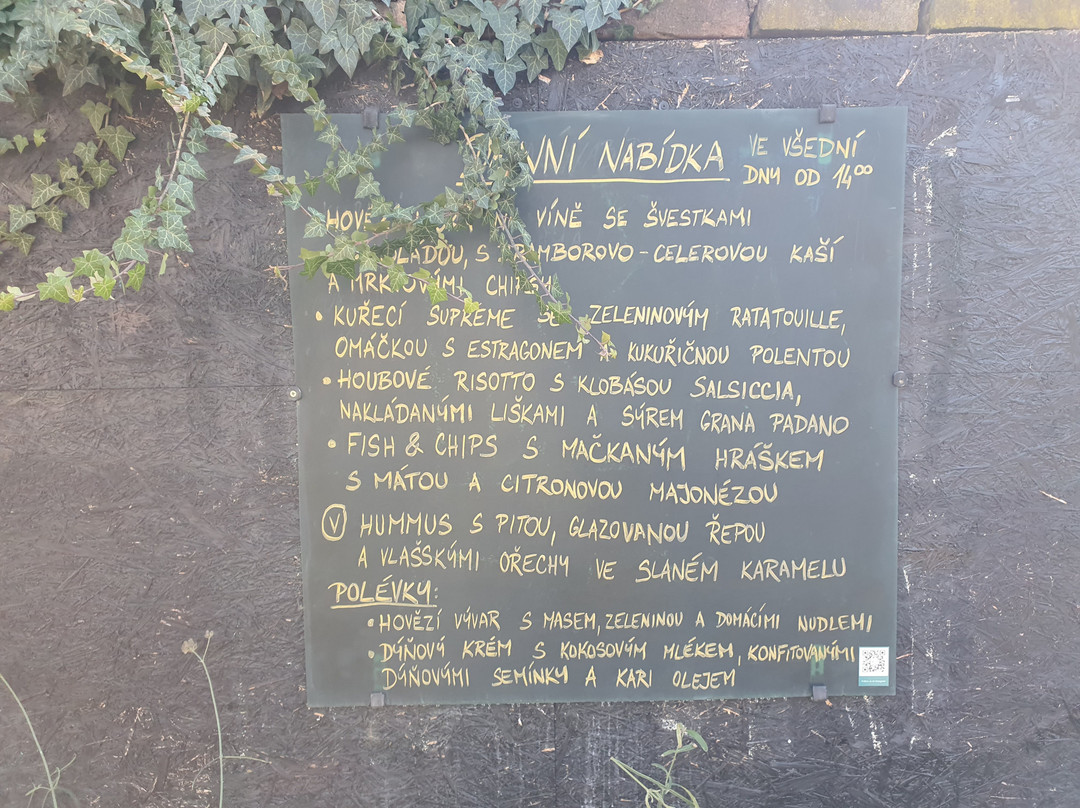 NABÍDKA VE VŠEDNÍ
DNY OD 14⁰⁰
VÍNĚ SE ŠVESTKAMI
S BRAMBOROVO-CELEROVOU KAŠÍ
A MRKVOVÝMI CHIPSY
• KUŘECÍ SUPRÊME SE ZELENINOVÝM RATATOUILLE,
OMÁČKOU S ESTRAGONEM A KUKUŘIČNOU POLENTOU
• HOUBOVÉ RISOTTO S KLOBÁSOU SALSICCIA,
NAKLÁDANÝMI LIŠKAMI A SÝREM GRANA PADANO
• FISH & CHIPS S MAČKANÝM HRÁŠKEM
S MÁTOU A CITRONOVOU MAJONÉZOU
V HUMMUS S PITOU, GLAZOVANOU ŘEPOU
A VLAŠSKÝMI OŘECHY VE SLANÉM KARAMELU
POLÉVKY:
• HOVĚZÍ VÝVAR S MASEM, ZELENINOU A DOMÁCÍMI NUDLEMI
• DÝŇOVÝ KRÉM S KOKOSOVÝM MLÉKEM, KONFITOVANÝMI
DÝŇOVÝMI SEMÍNKY A KARI OLEJEM